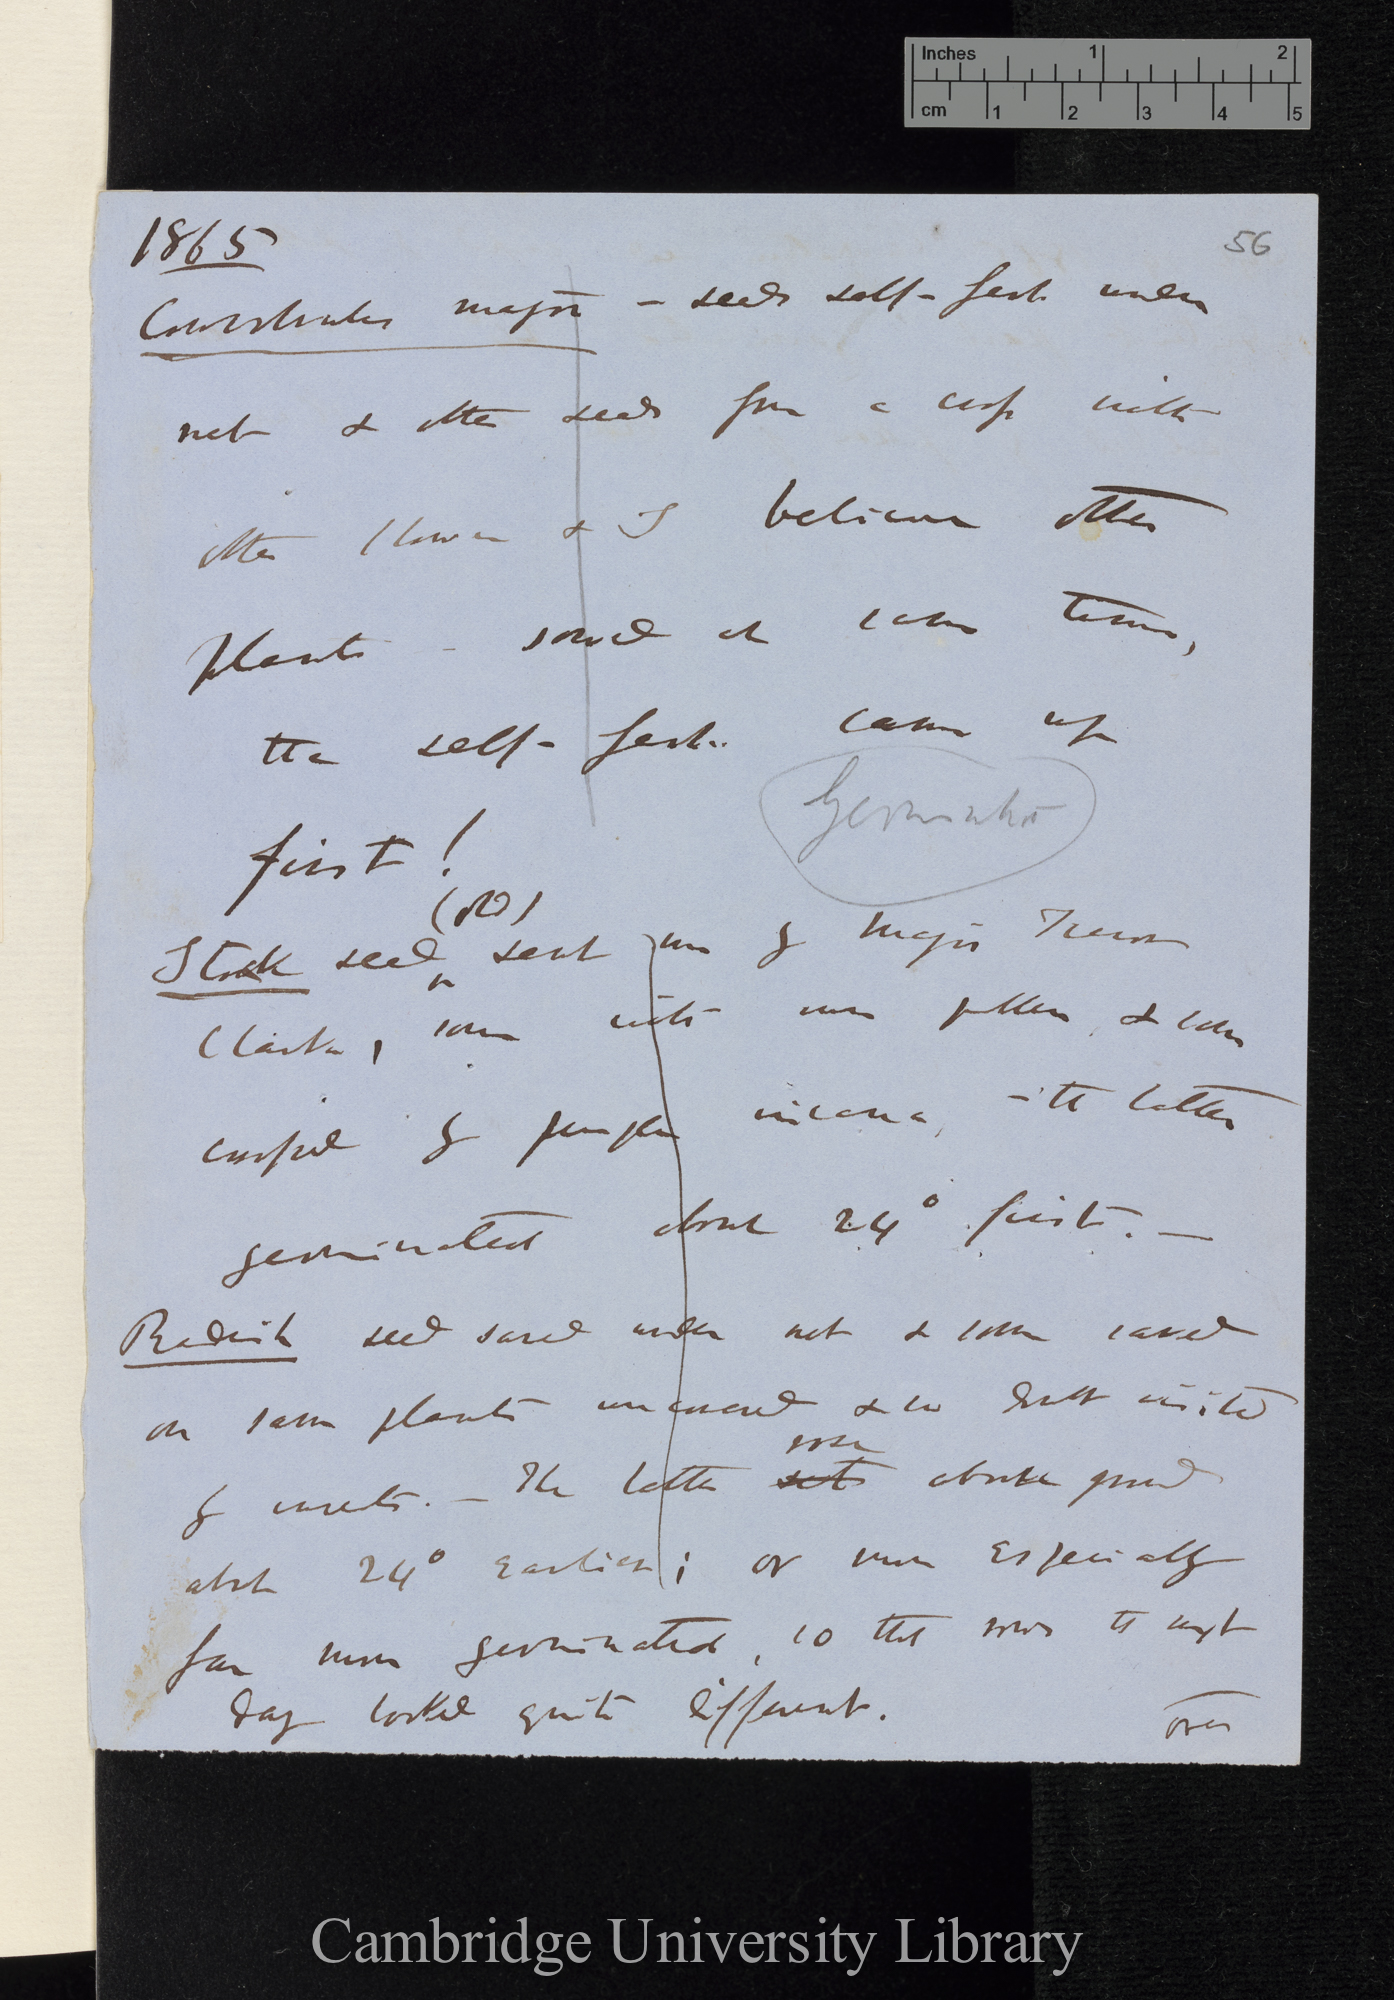 Inches 1 2
cm 1 2 3 4 5
56
1865
Convolvulus major — seeds self-fert under
net & other seeds from a cross with
other flower & I believe other
plants — sowed at same time,
the self-fert. came up
first!
Germination
(old)
Stock seed sent me by Major Trevor
Clarke, some with own pollen, & some
crossed by purple incana, — the latter
germinated about 24° first. —
Radish seed saved under net & some saved
on same plants uncovered & so visited
by insects. — The latter sets above ground
rose
about 24° earlier; or more especially
far more germinated, so that rows the next
day looked quite different.
over
Cambridge University Library